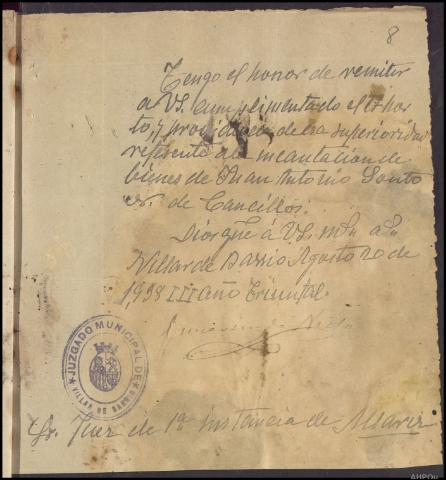 8
Tengo el honor de remitir
a VS. cumplimentado el
to, y de esa superioridad
referente a la incautacion de
bienes de Juan Antonio Santo
de Cancillos.
Dios gue á V.S. ms as
Villar de Barrio Agosto 20 de
1,938 III Año Triunfal.
JUZGADO MUNICIPAL DE
VILLAR DE BARRIO
Sr. Juez de 1ª instancia de Allariz
AHPOu